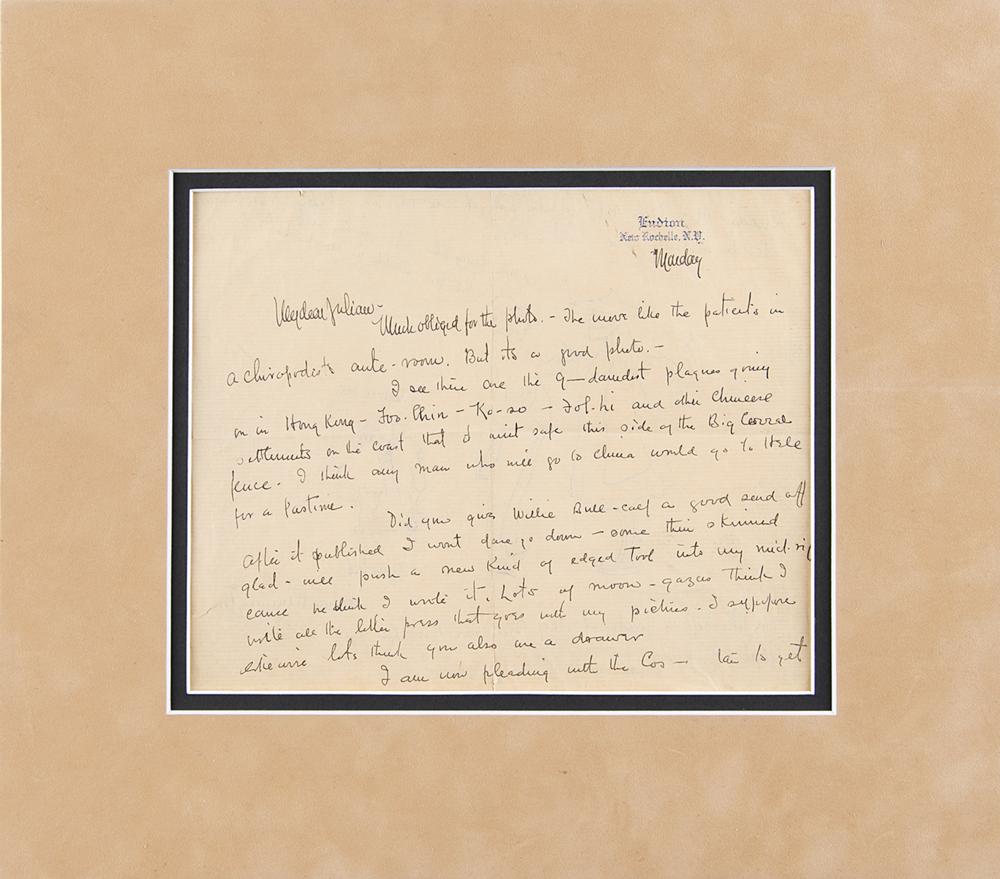 Endion,
New Rochelle, N.Y.
Monday
My dear Julian -
Much obliged for the photo. - The move like the patients in
a chiropodists ante-room. But its a good photo. -
I see there are the g—darndest plagues going
on in Hong Kong - Foo. Chin - Ko-so - Fol-hi and other Chineese
settlements on the coast that it aint safe this side of the Big Corral
fence. I think any man who will go to China would go to Hell
for a Pastime.
Did you give Willie Bull-calf a good send off
After it published I wont dare go down - some thin skinned
glad- will push a new kind of edged Tool into my mid. rif
cause he think I write it. Lots of moon-gazers think I
write all the letter press that goes with my pictures. I suppose
likewise lots think you also are a drawer
I am now pleading with the Cos - to get